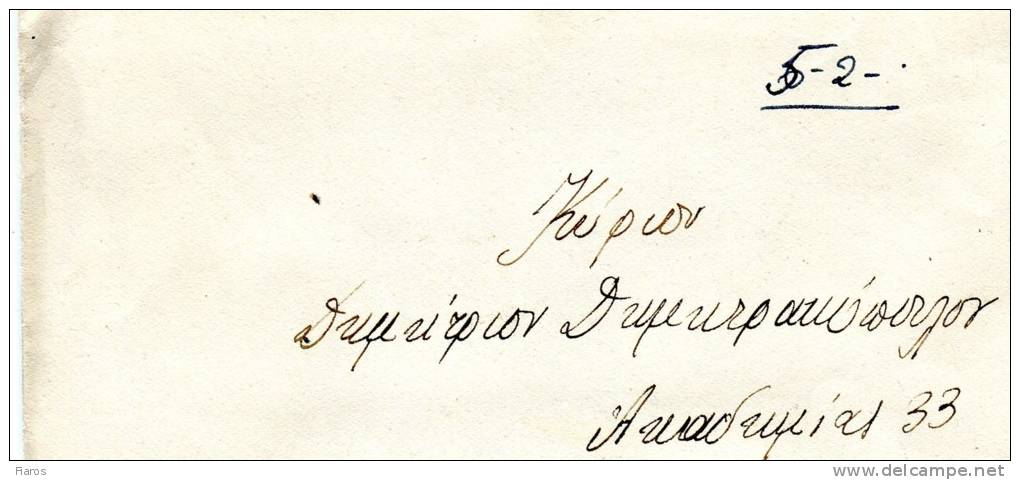 5-2-.
Κύριον
Δημήτριον Δημητρακόπουλον
Ακαδημίας 33
fiaros
www.delcampe.net